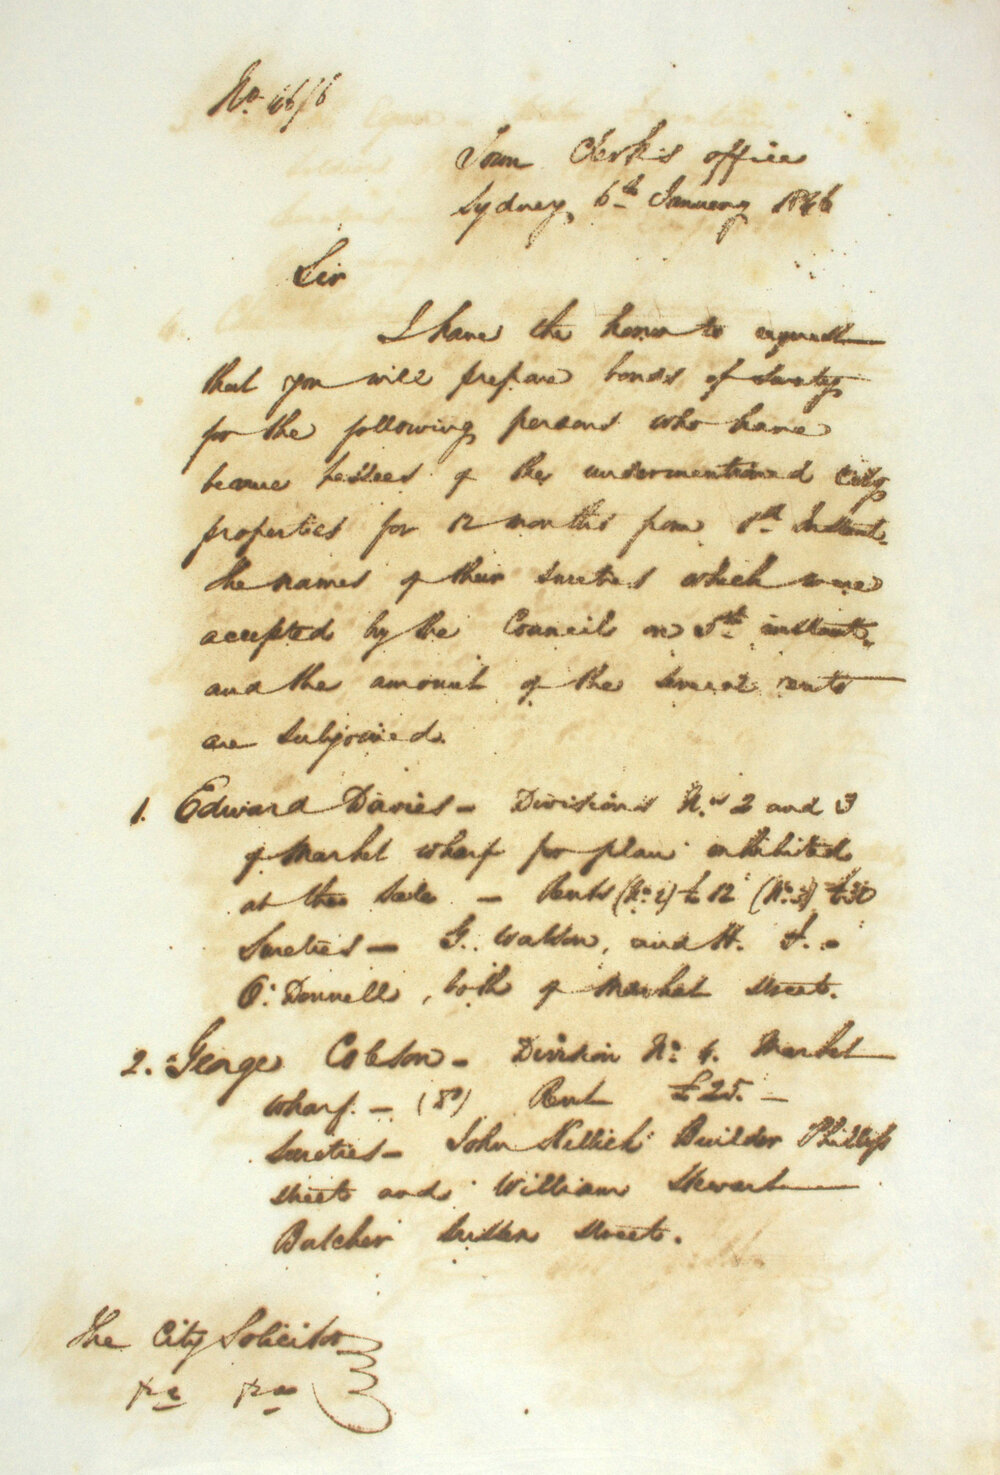 No. 46/6
Town Clerk's office
Sydney, 6th January 1846
Sir
I have the honor to request
that you will prepare bonds of surety
for the following persons who have
become lessees of the undermentioned City
properties for 12 months from 1st Instant.
The names of their sureties which were
accepted by the Council on 5th instant,
and the amount of the several rents
are subjoined.
1. Edward Davies - Divisions Nos 2 and 3
of Market wharf per plan exhibited
at the sale - Rents (No. 2) £12 (No. 3) £30
Sureties - G. Watson, and H. J.
O'Donnell, both of Market street.
2. George Cobson - Division No. 4. Market
wharf. - (Do) Rent £25. -
Sureties - John Killick Builder Phillip
street and William Stewart
Butcher Sussex street.
The City Solicitor
&c &c